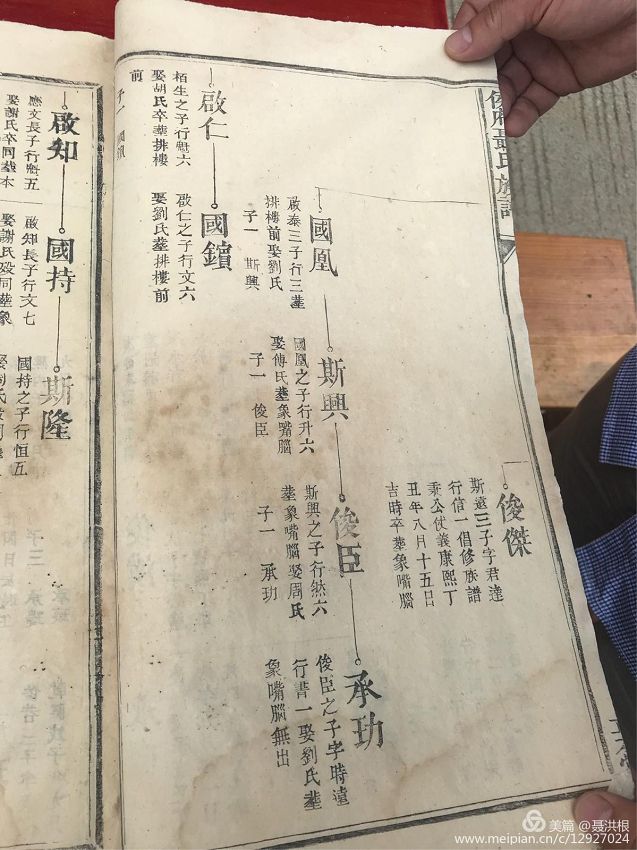 俊傑
斯遠三子字君達
行信一倡修族譜
秉公伏義康熙丁
丑年八月十五日
吉時卒葬象嘴腦
國凰
啟泰三子行三葬
排樓前娶劉氏
子一 斯興
斯興
國凰之子行升六
娶傅氏葬象嘴腦
子一 俊臣
俊臣
斯興之子行然六
葬象嘴腦娶周氏
子一 承玏
承玏
俊臣之子字時遠
行書一娶劉氏葬
象嘴腦無出
啟仁
栢生之子行魁六
娶胡氏卒葬排樓
前 子一 國鑌
國鑌
啟仁之子行文六
娶劉氏葬排樓前
啟知
應文長子行魁五
娶謝氏卒同葬本
國持
啟知長子行文七
娶謝氏歿同葬象
斯隆
國持之子行恒五
美篇 @聂洪根
www.meipian.cn/c/12927024